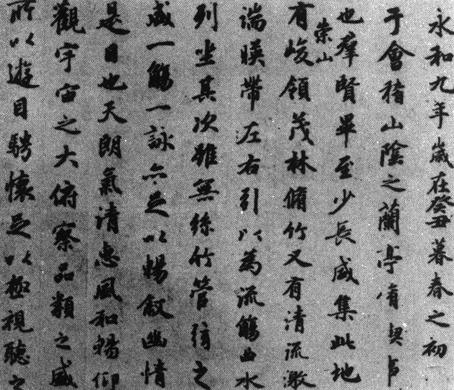 永和九年歲在癸丑暮春之初
于會稽山陰之蘭亭脩禊事
也羣賢畢至少長咸集此地
有崇山峻領茂林脩竹又有清流激
湍暎帶左右引以為流觴曲水
列坐其次雖無絲竹管弦之
盛一觴一詠亦足以暢叙幽情
是日也天朗氣清惠風和暢仰
觀宇宙之大俯察品類之盛
所以遊目騁懷足以極視聽之